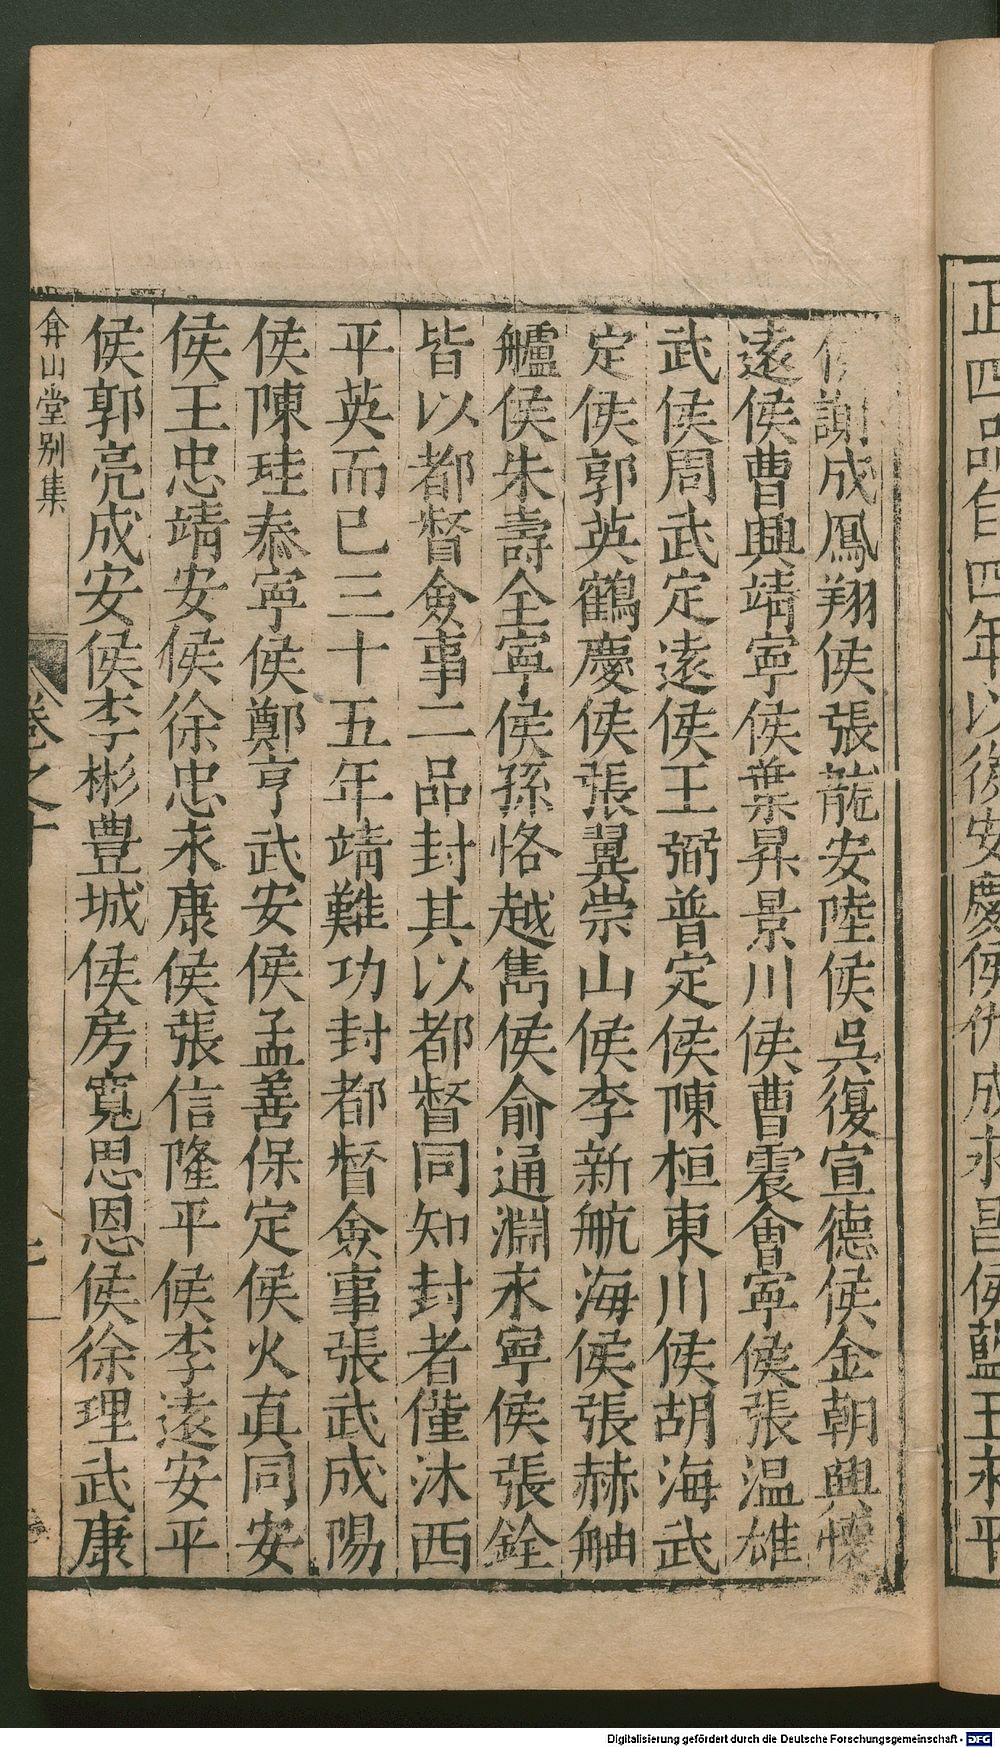 正四品自四年以後安慶侯仇成永昌侯藍玉永平
侯謝成鳳翔侯張龍安陸侯吳復宣德侯金朝興懷
遠侯曹興靖寧侯葉昇景川侯曹震會寧侯張溫雄
武侯周武定遠侯王弼普定侯陳桓東川侯胡海武
定侯郭英鶴慶侯張翼崇山侯李新航海侯張赫舳
艫侯朱壽全寧侯孫恪越雋侯俞通淵永寧侯張銓
皆以都督僉事二品封其以都督同知封者僅沐西
平英而已三十五年靖難功封都督僉事張武成陽
侯陳珪泰寧侯鄭亨武安侯孟善保定侯火真同安
侯王忠靖安侯徐忠永康侯張信隆平侯李遠安平
侯郭亮成安侯李彬豊城侯房寬思恩侯徐理武康
弇山堂别集
卷之十
Digitalisierung gefördert durch die Deutsche Forschungsgemeinschaft - DFG